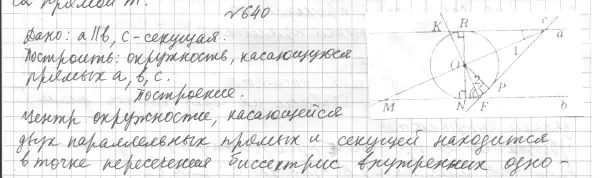 са прямой m.
№640
Дано: a∥b, c-секущая.
Построить: окружность, касающуюся
прямых a, b, c.
Построение.
Центр окружности, касающейся
двух параллельных прямых и секущей находится
в точке пересечения биссектрис внутренних одно-
K R c a
1
O
2 P
M N F b